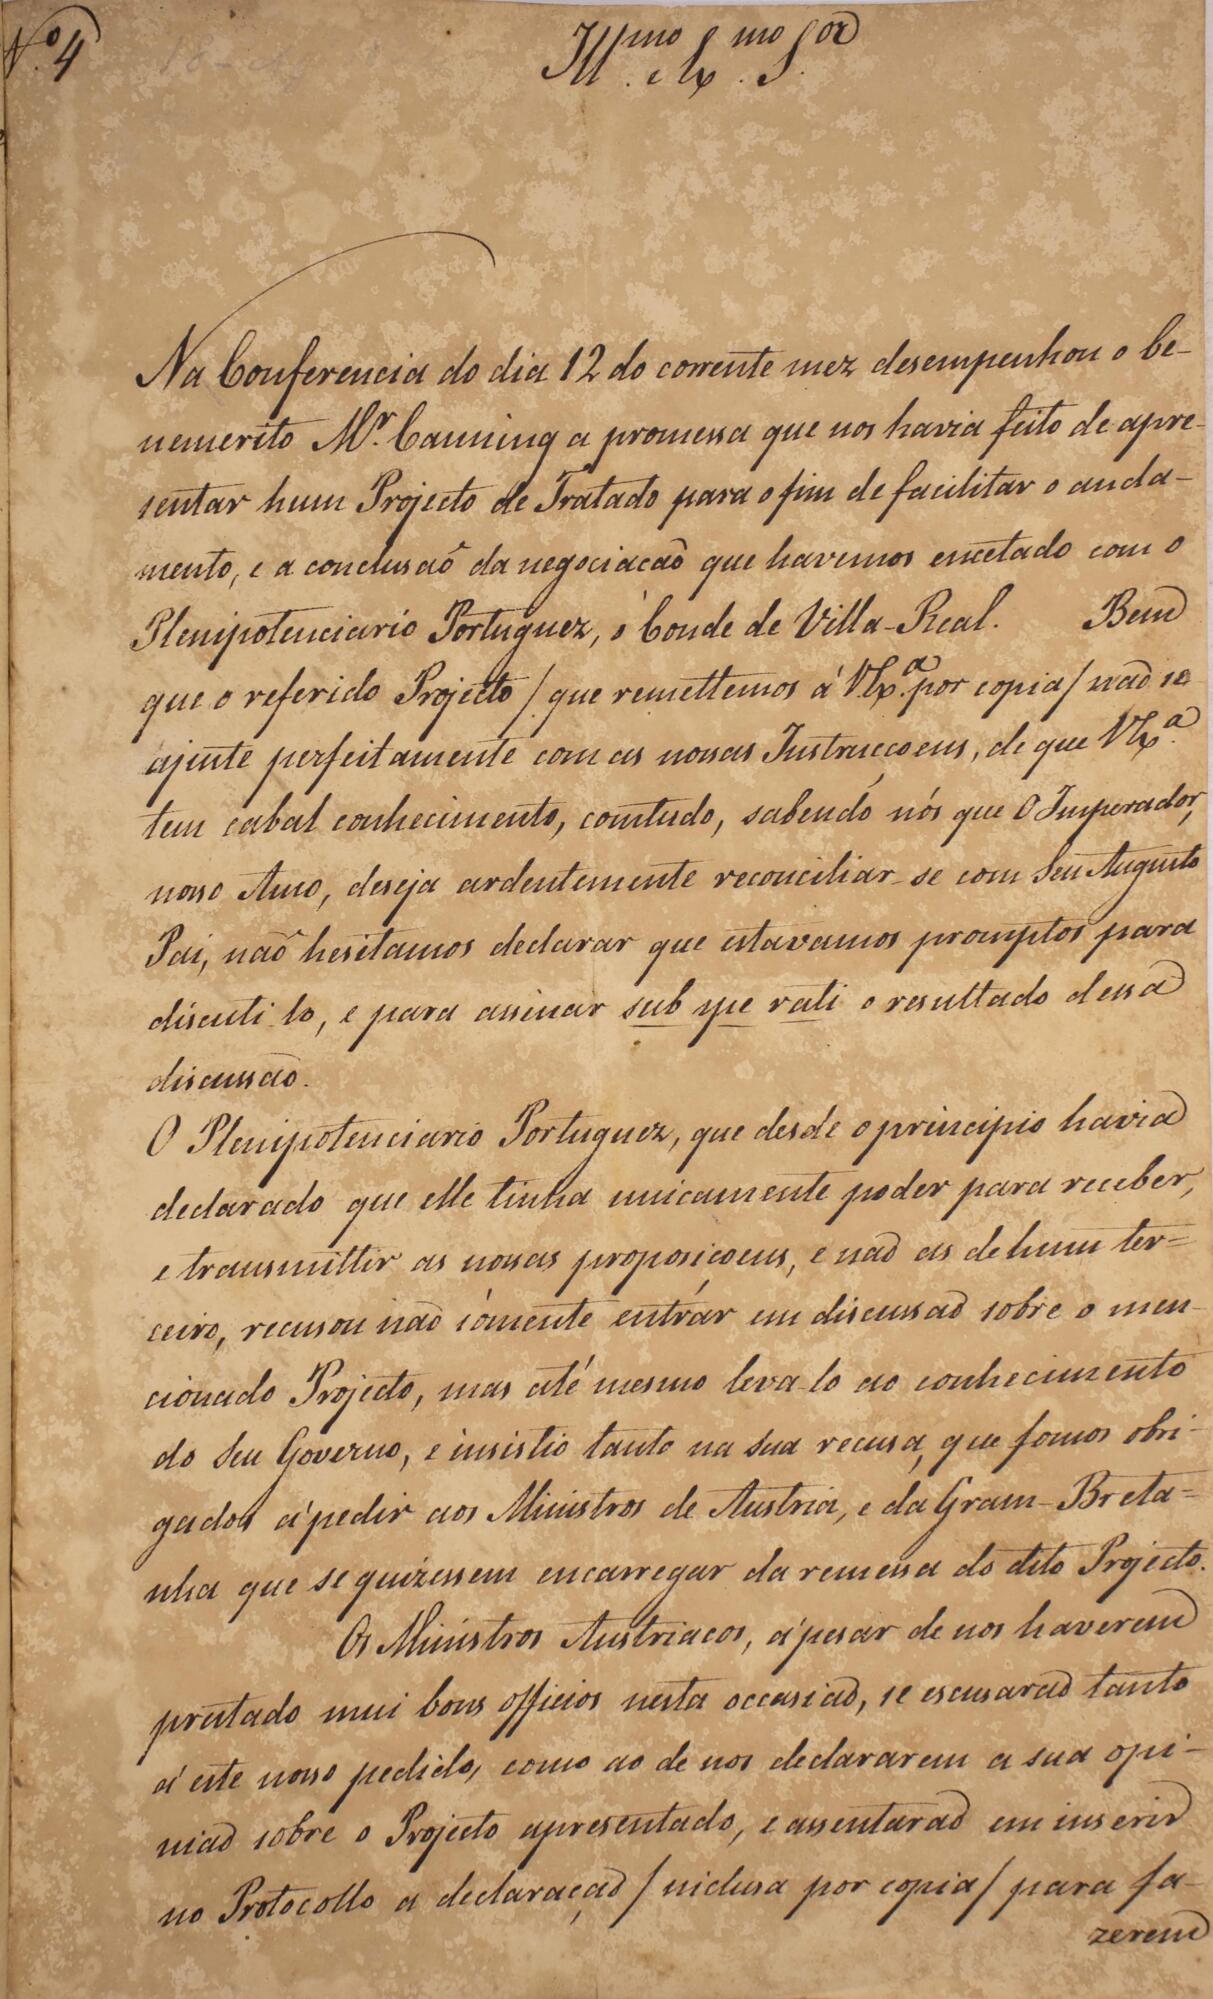 Nº 4
Illmo e Exmo Sor
Na Conferencia do dia 12 do corrente mez desempenhou o be-
nemerito Mr. Canning a promessa que nos havia feito de apre-
sentar hum Projecto de Tratado para o fim de facilitar o anda-
mento, e a conclusaõ da negociacaõ que havemos encetado com o
Plenipotenciario Portuguez, o Conde de Villa-Real. Bem
que o referido Projecto / que remettemos á VExª. por copia / naõ se
ajuste perfeitamente com as nossas Instrucçoens, de que VExª.
tem cabal conhecimento, comtudo, sabendo nós que O Imperador,
nosso Amo, deseja ardentemente reconciliar-se com Seu Augusto
Pai, naõ hesitamos declarar que estavamos promptos para
discuti-lo, e para assinar sub spe rati o resultado dessa
discussaõ.
O Plenipotenciario Portuguez, que desde o principio havia
declarado que elle tinha unicamente poder para receber,
e transmittir as nossas proposiçoens, e naõ as de hum ter=
ceiro, recusou naõ sómente entrár em discussaõ sobre o men-
cionado Projecto, mas até mesmo leva-lo ao conhecimento
do Seu Governo, e insistio tanto na sua recusa, que fomos obri-
gados á pedir aos Ministros de Austria, e da Gram-Breta=
nha que se quizessem encarregar da remessa do dito Projecto.
Os Ministros Austriacos, á pesar de nos haverem
prestado mui bons officios nesta occasiaõ, se escusaraõ tanto
á este nosso pedido, como ao de nos declararem a sua opi-
niaõ sobre o Projecto apresentado, e assentaraõ em inserir
no Protocollo a declaraçaõ / inclusa por copia / para fa-
zerem